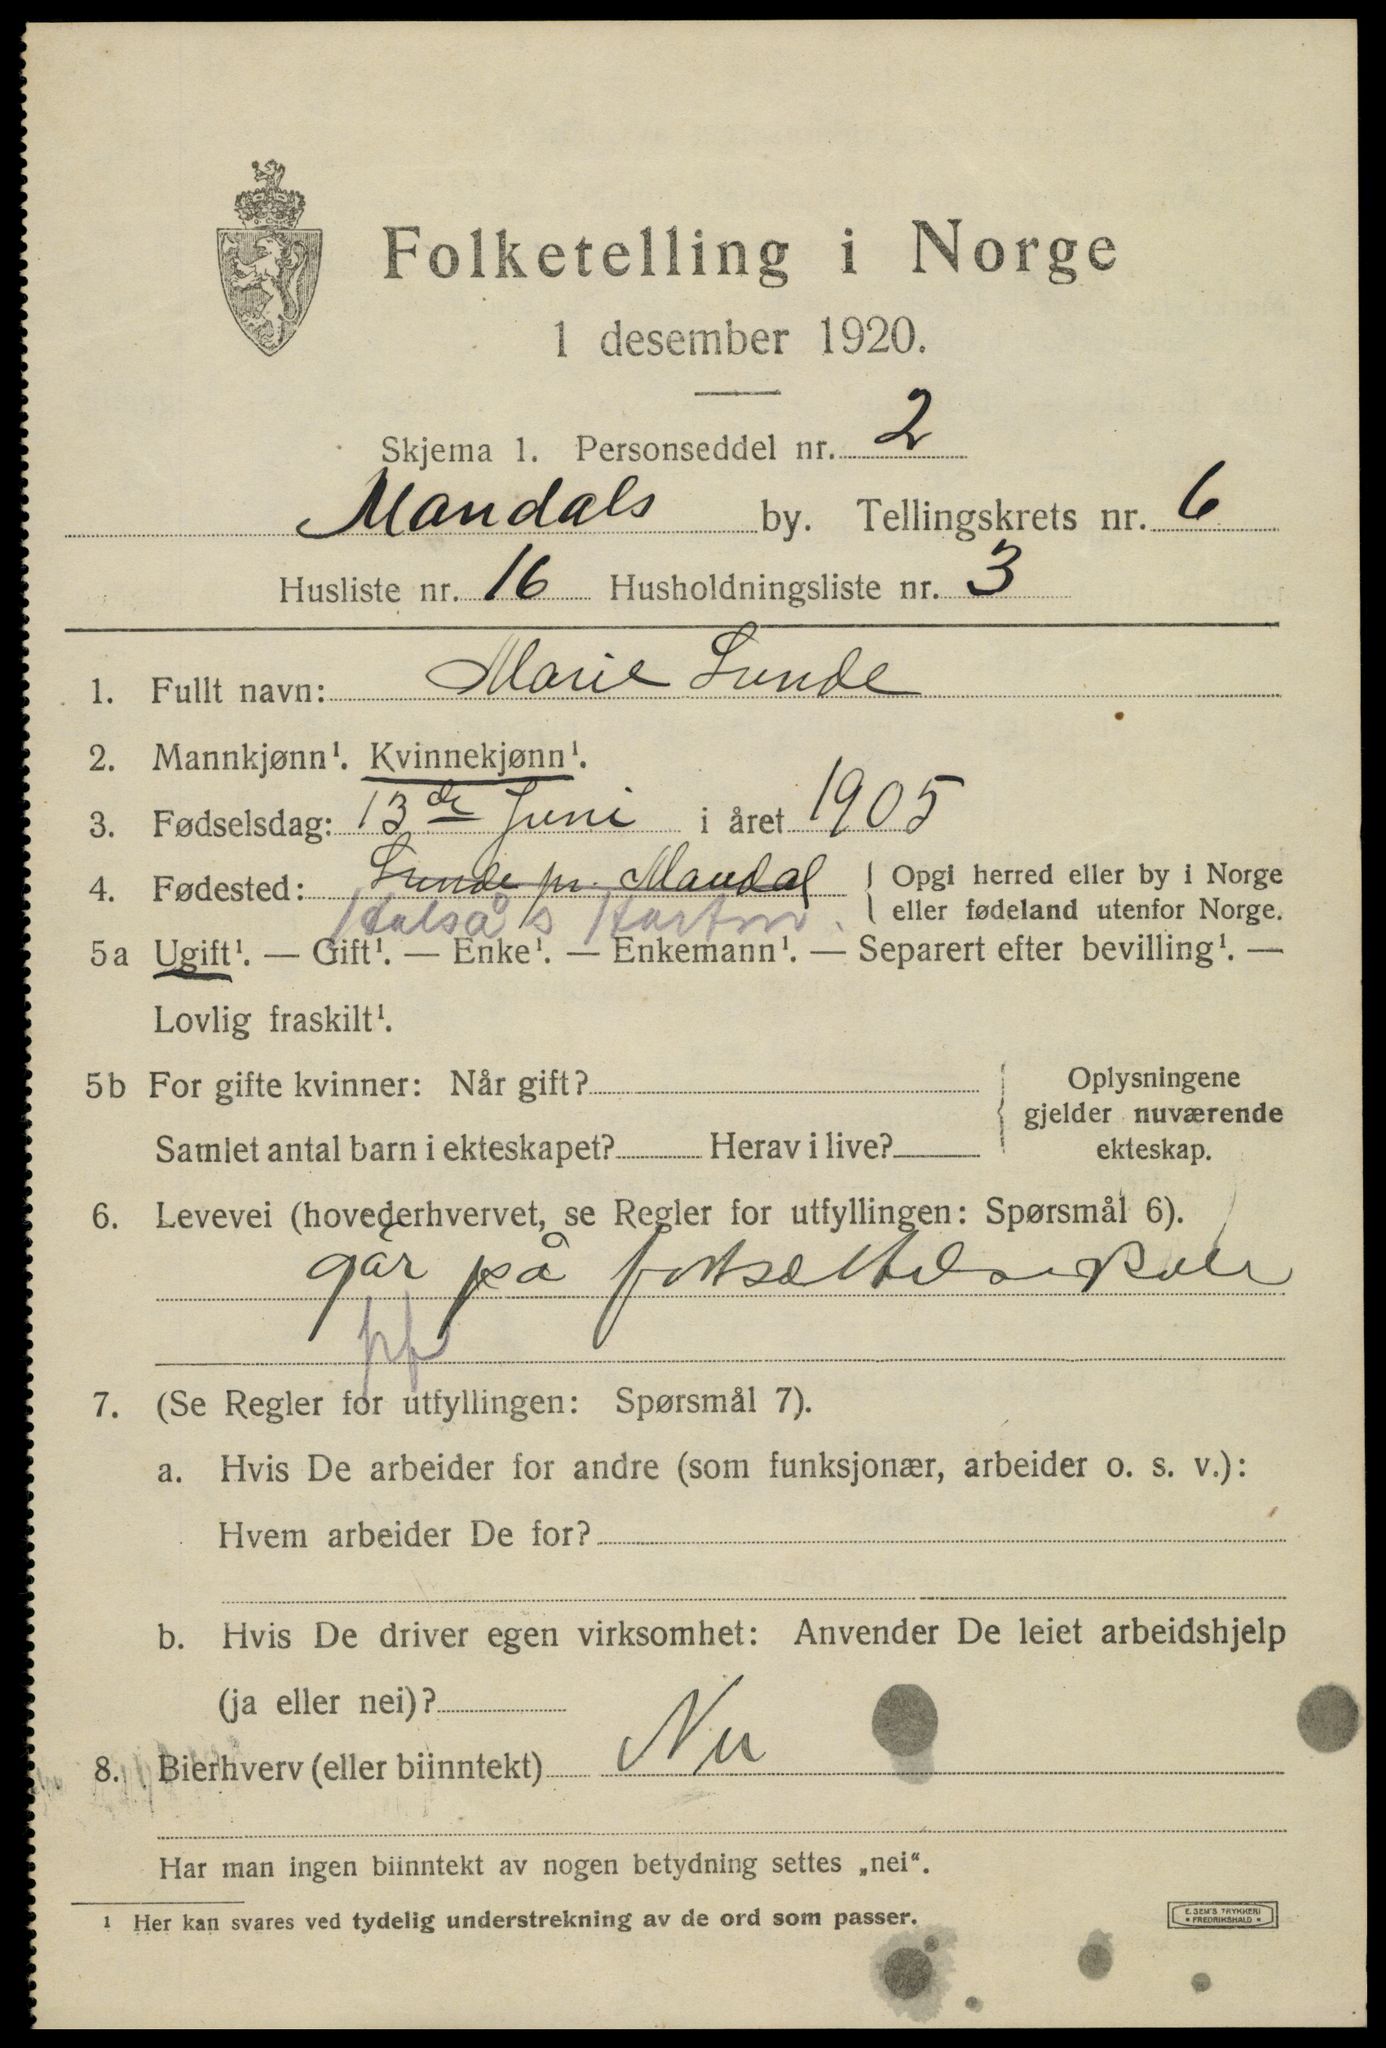 Folketelling i Norge
1 desember 1920.
Skjema 1. Personseddel nr. 2
Mandals by. Tellingskrets nr. 6
Husliste nr. 16 Husholdningsliste nr. 3
1. Fullt navn: Marie Lunde
2. Mannkjønn¹. Kvinnekjønn¹.
3. Fødselsdag: 13de Juni i året 1905
4. Fødested: Lunde pr. Mandal { Opgi herred eller by i Norge
Halså & Hartm. { eller fødeland utenfor Norge.
5a Ugift¹. — Gift¹. — Enke¹. — Enkemann¹. — Separert efter bevilling¹. —
Lovlig fraskilt¹.
5b For gifte kvinner: Når gift? { Oplysningene
gjelder nuværende
Samlet antal barn i ekteskapet? Herav i live? ekteskap.
6. Levevei (hovederhvervet, se Regler for utfyllingen: Spørsmål 6).
går på fortsættelseskole
pf
7. (Se Regler for utfyllingen: Spørsmål 7).
a. Hvis De arbeider for andre (som funksjonær, arbeider o. s. v.):
Hvem arbeider De for?
b. Hvis De driver egen virksomhet: Anvender De leiet arbeidshjelp
(ja eller nei)?
8. Bierhverv (eller biinntekt) Nei
Har man ingen biinntekt av nogen betydning settes „nei“.
¹ Her kan svares ved tydelig understrekning av de ord som passer.
E. SEM'S TRYKKERI
* FREDRIKSHALD *